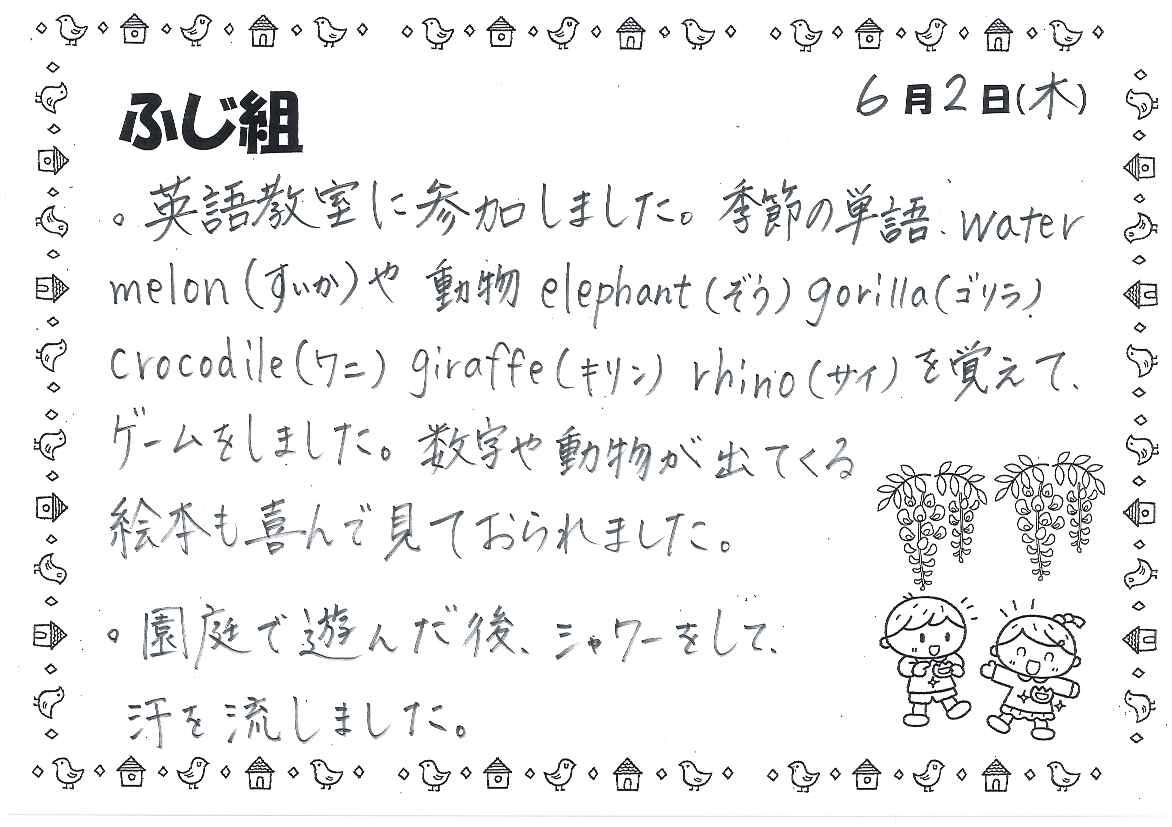 ふじ組
6月2日(木)
。英語教室に参加しました。季節の単語、water
melon(すいか)や 動物 elephant(ぞう) gorilla(ゴリラ)
crocodile(ワニ) giraffe(キリン) rhino(サイ)を覚えて、
ゲームをしました。数字や動物が出てくる
絵本も喜んで見ておられました。
。園庭で遊んだ後、シャワーをして、
汗を流しました。